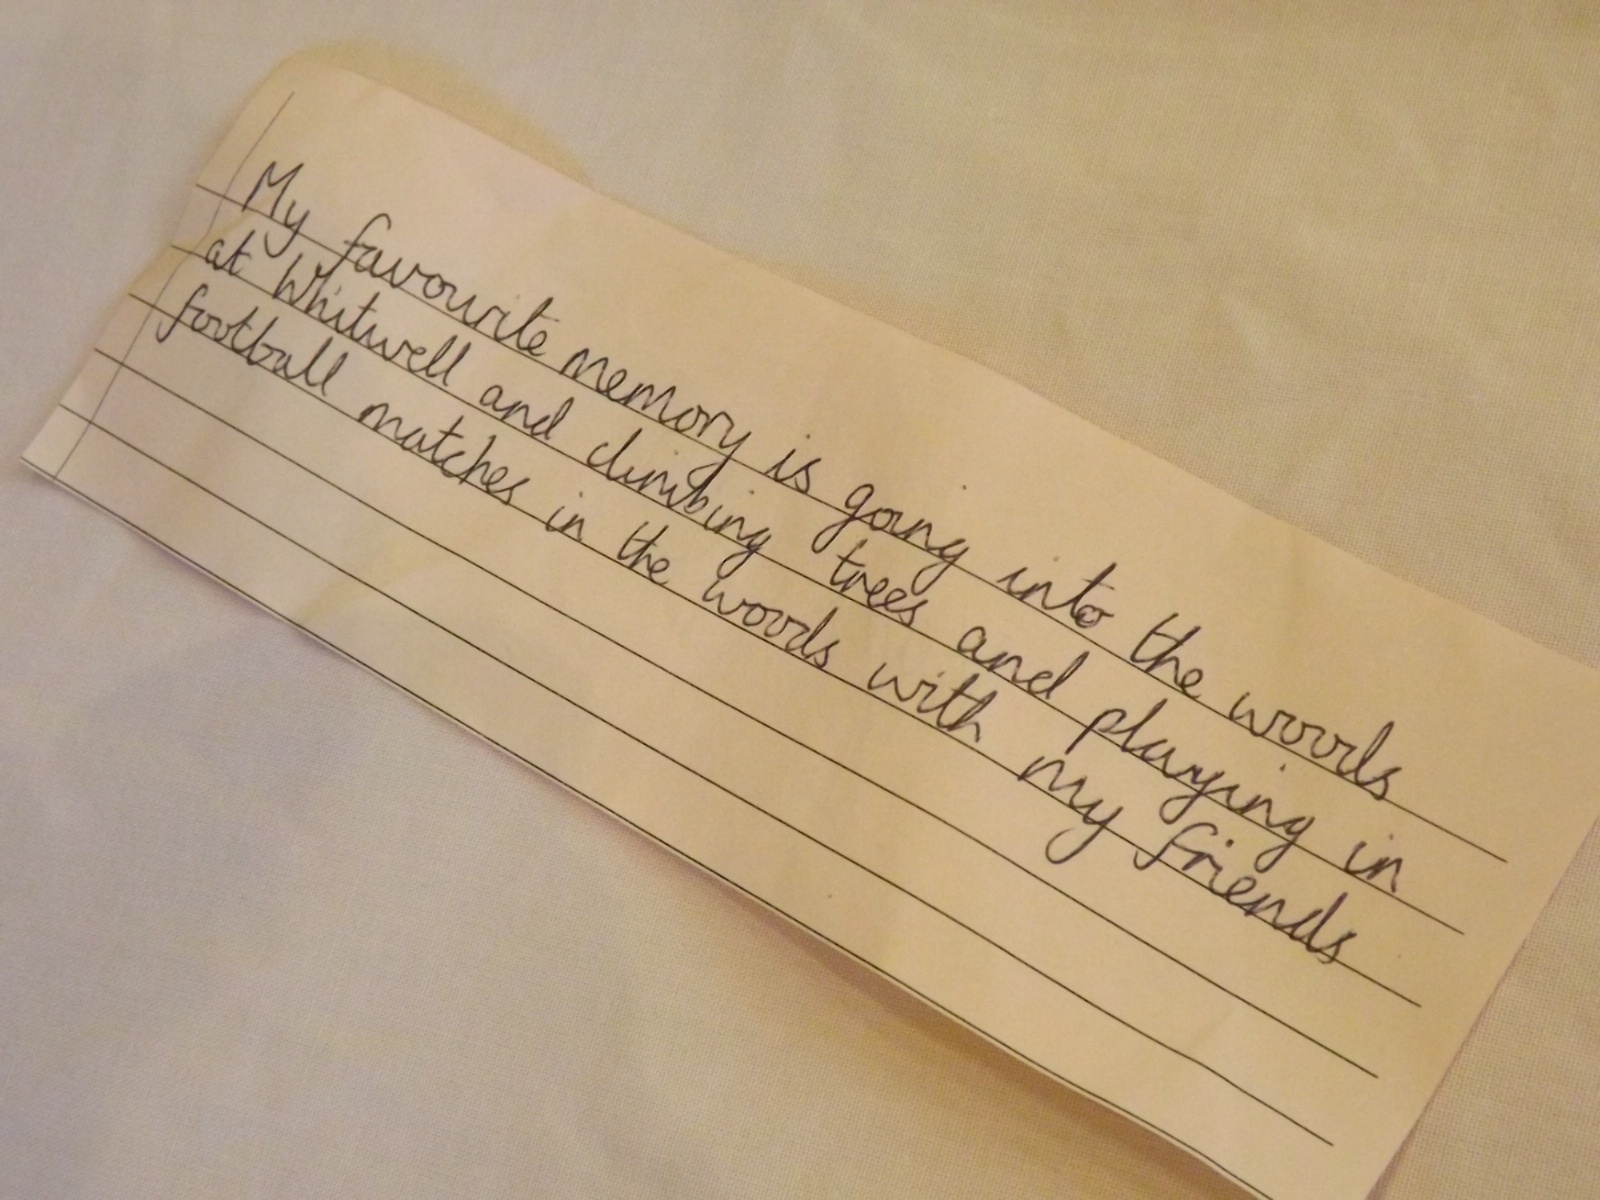 My favourite memory is going into the woods
at Whitwell and climbing trees and playing in
football matches in the woods with my friends